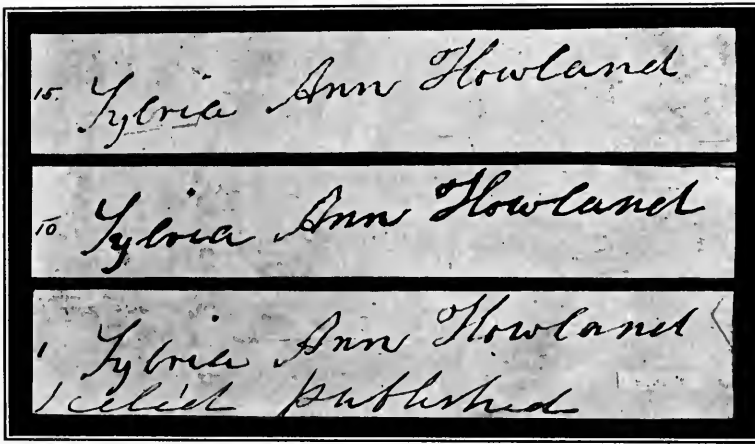 15. Sylvia Ann Howland
10. Sylvia Ann Howland
1 Sylvia Ann Howland
published